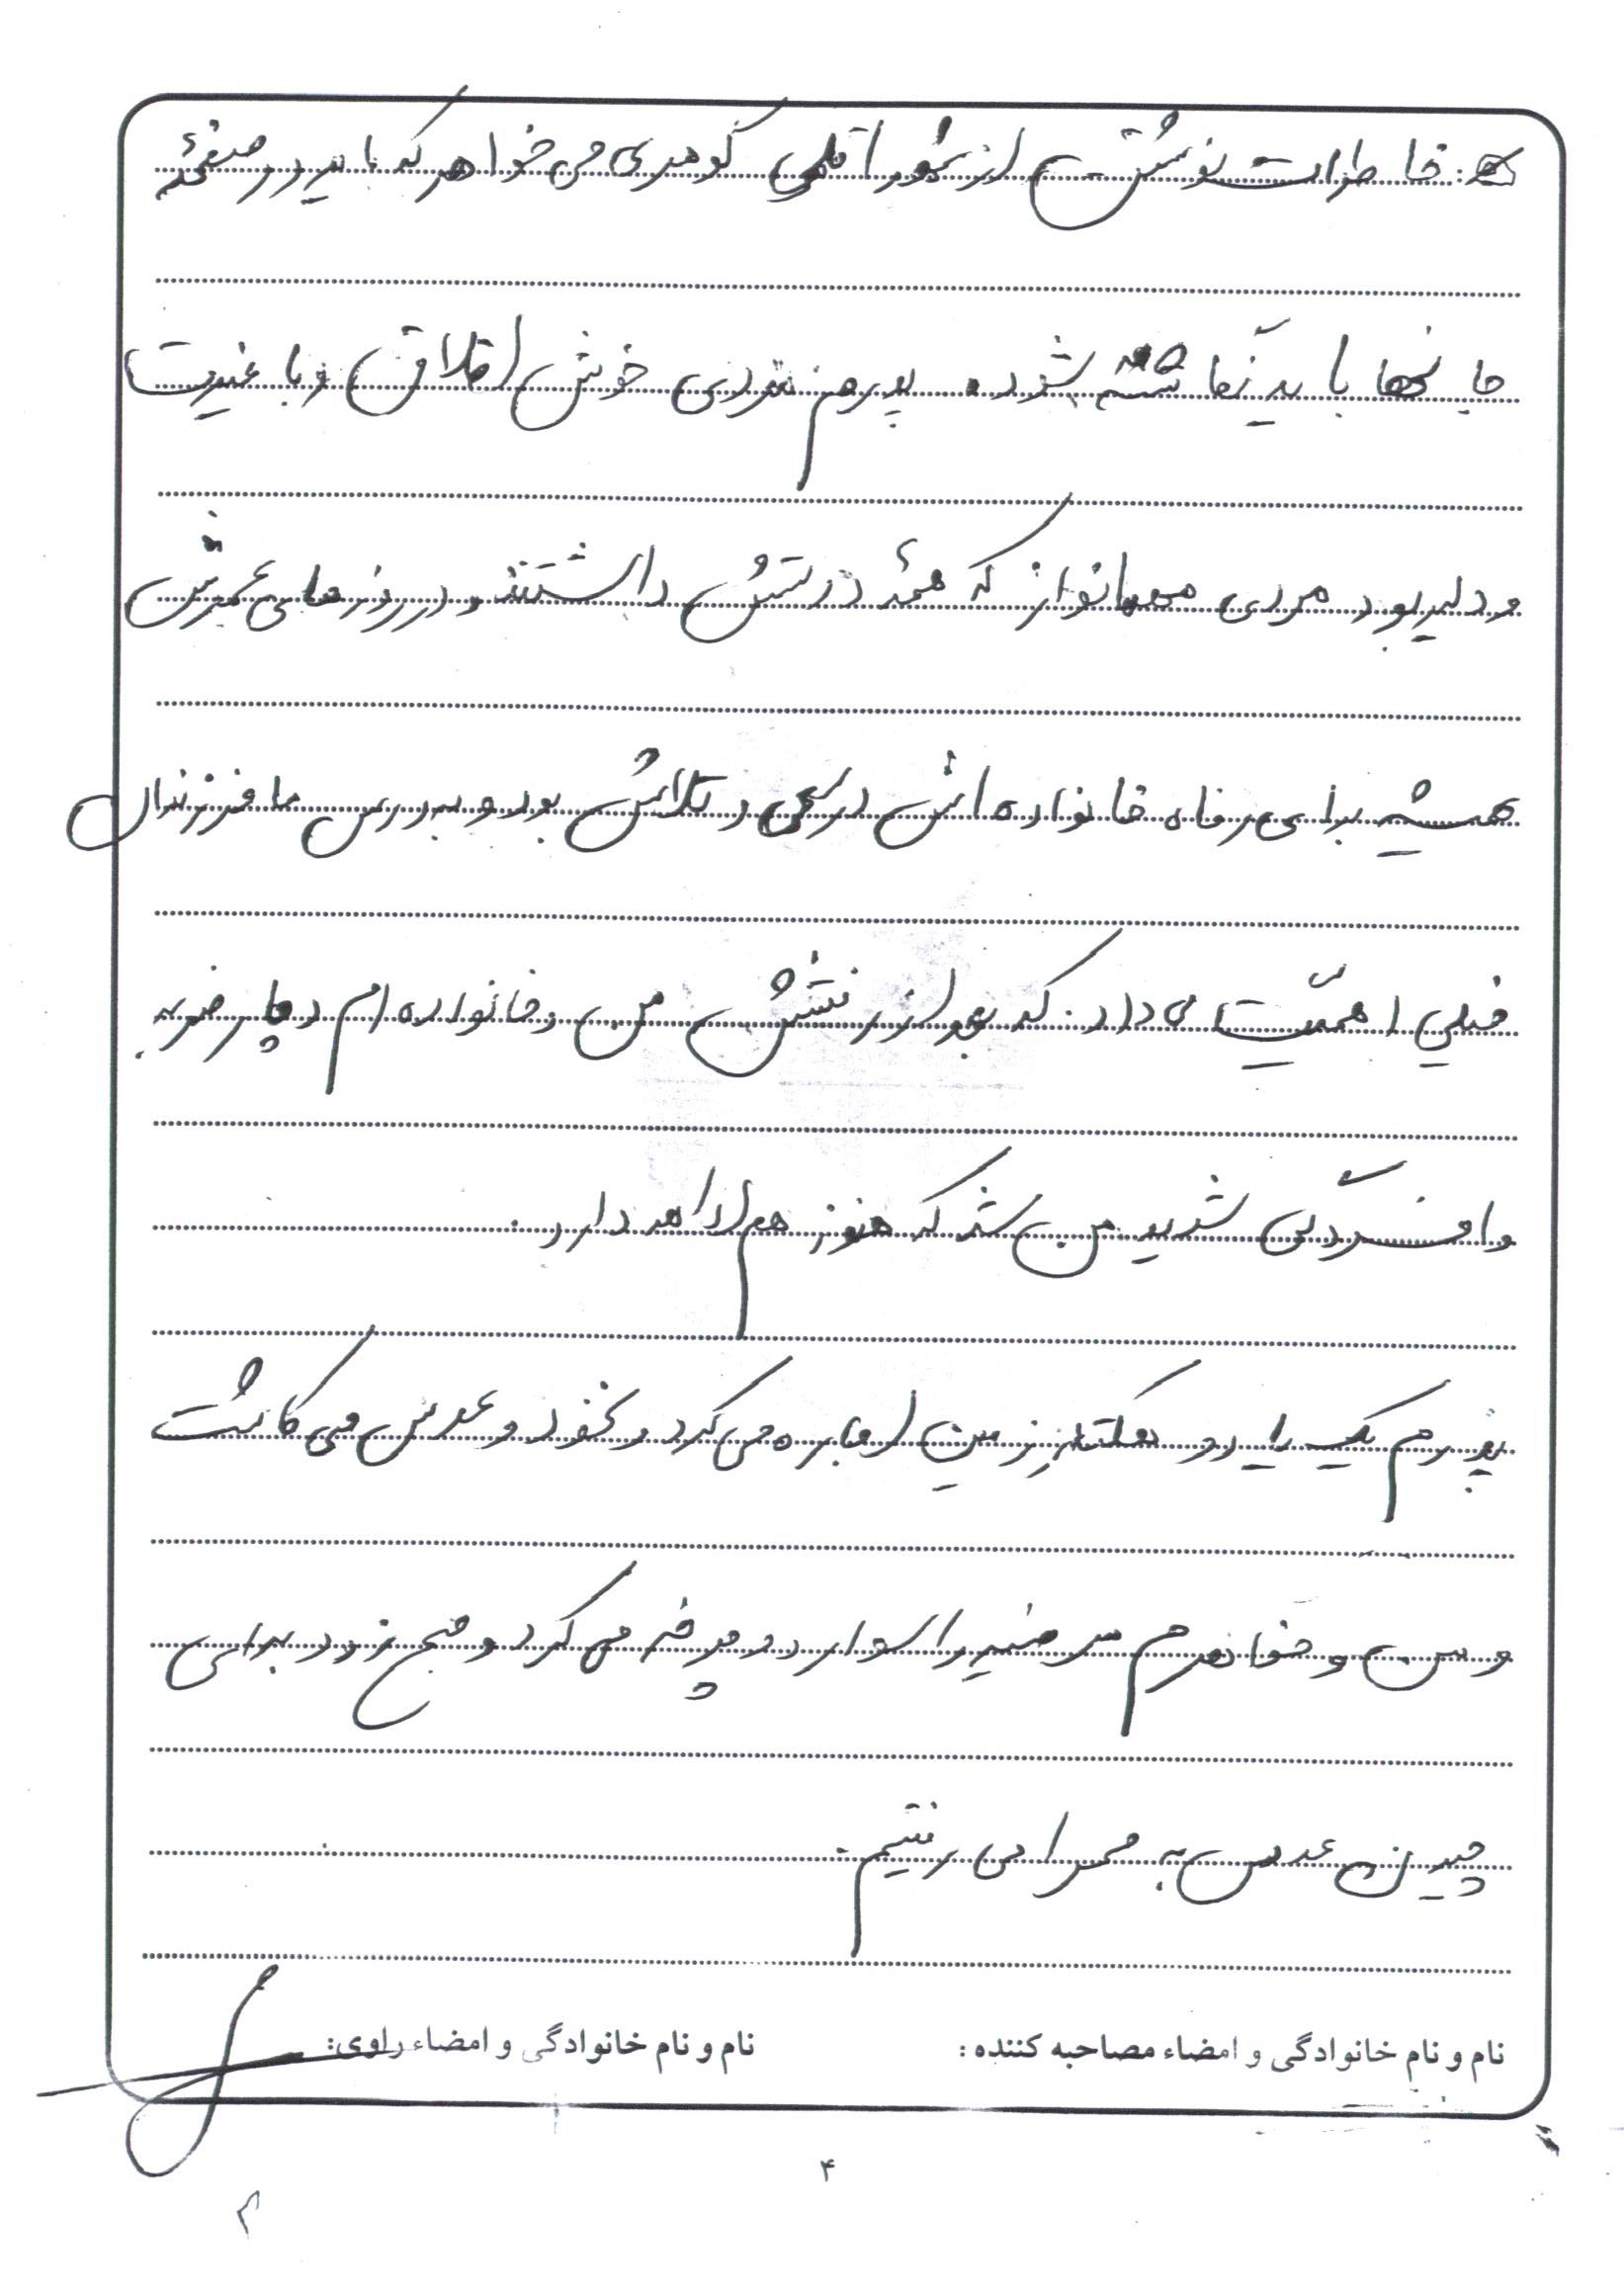 خاطرات نوشتن از شهدا قلمی گوهری می خواهد که باید در صفحهٔ
جانها باید آنها شود. پدرم مردی خوش اخلاق و با غیرت
و دلیر بود مردی مهمانواز که همه دوستش داشتند و در روزهای عمرش
همیشه برای رفاه خانواده اش در سعی و تلاش بود و به درس ما فرزندان
خیلی اهمیّت می داد. که بعد از رفتنش من و خانواده ام دچار ضربه
و افسردگی شدید من شد که هنوز هم ادامه دارد.
پدرم یک یا دو هکتار زمین اجاره می کرد و نخود و عدس می کاشت
و من و خواهرم مرضیه را سوار دوچرخه می کرد و صبح زود برای
چیدن عدس به صحرا می رفتیم.
نام و نام خانوادگی و امضاء مصاحبه کننده: نام و نام خانوادگی و امضاء راوی:
۴